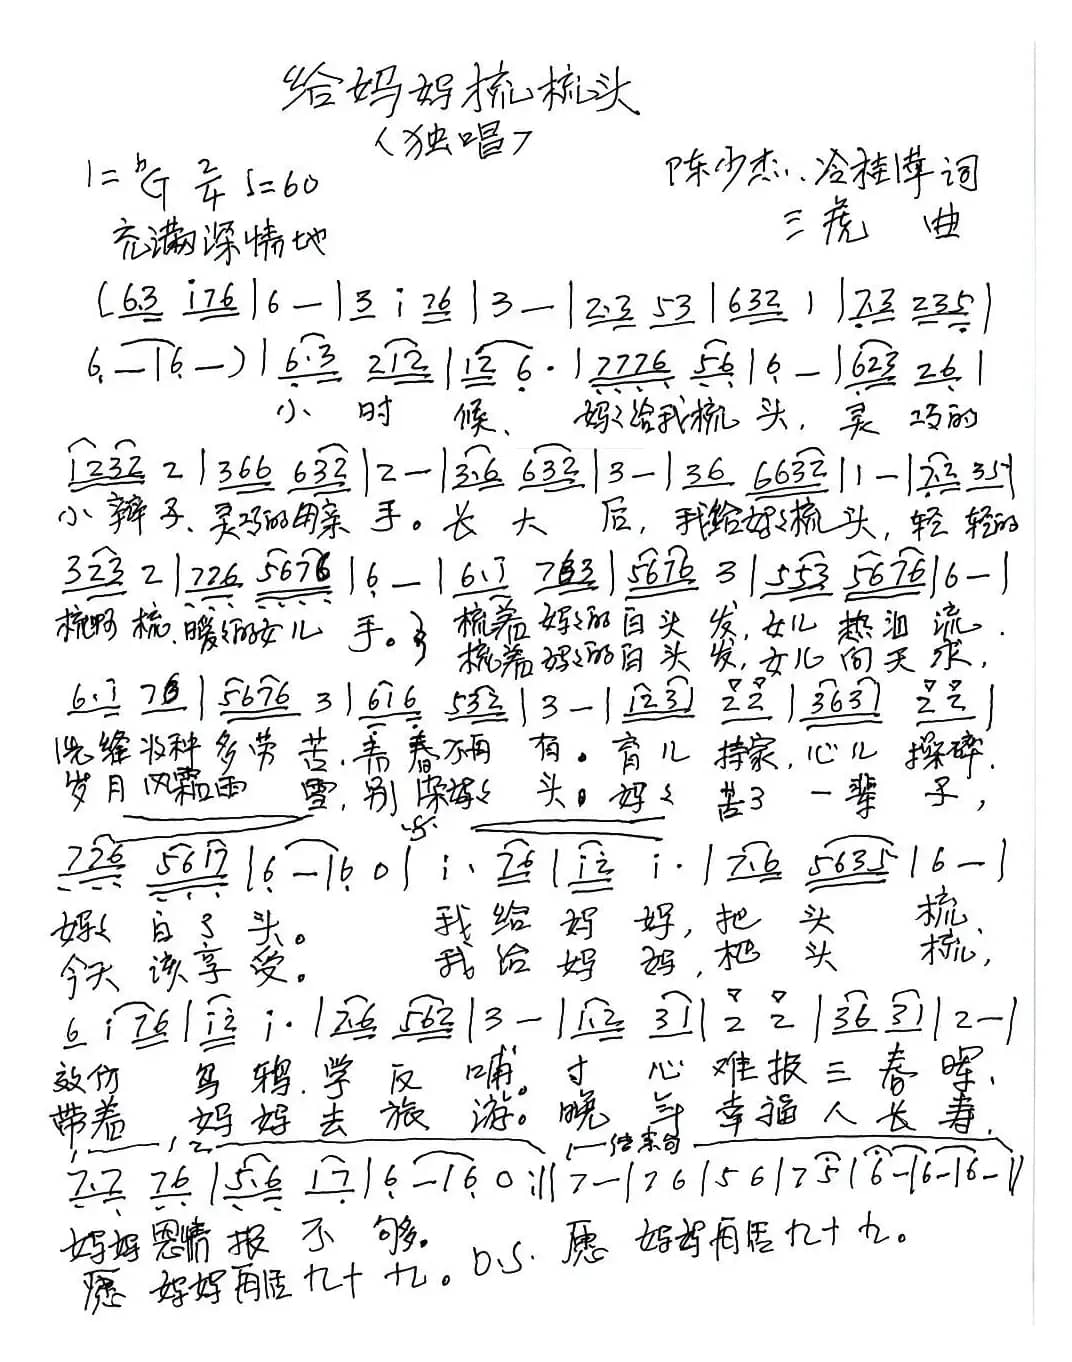 给妈妈梳梳头
（独唱）
1=ᵇG 2/4 ♩=60
陈少杰、冷桂萍词
充满深情地
三虎 曲
(6.3 i76|6 —|3 i 76|3 —|2.3 53|632 1|7.3 235|
6 —|6 —)|6.3 212|12 6·|7776 56|6 —|623 26|
小 时 候、 妈〻给我梳 头，灵 巧的
1232 2|366 632|2 —|3.6 632|3 —|36 6632|1 —|7.2 35|
小 辫 子、灵巧的母亲 手。长 大 后，我给妈〻梳 头，轻 轻的
323 2|726 5676|6 —|6.i 763|5676 3|553 5676|6 —|
梳啊 梳、暖〻的女儿 手。 梳着 妈〻的白头 发，女儿 热泪 流.
梳着 妈〻的白头 发，女儿 问天 求，
6.i 76|5676 3|616 532|3 —|1231 22|3631 22|
洗缝 收种 多劳 苦.青春不再 有。育儿 持家，心儿 操碎.
岁月 风霜雨 雪，别染妈〻 头。妈〻 苦了 一辈 子，
726 5617|6 —|6 0|i. 76|i2 i·|7.6 5635|6 —|
妈〻 白了 头。 我 给 妈 妈，把 头 梳、
今天 该享 受。 我 给 妈 妈，把 头 梳，
6 i76|i2 i·|7.6 562|3 —|1.2 31|2 2|36 31|2 —|
效仿 乌 鸦.学 反 哺。寸 心 难报三春 晖、
带着 妈 妈 去 旅 游。晚 年 幸福人长 寿，
1, 2 结束句
7.7 76|5.6 17|6 —|6 0:‖7 —|76|56|75|6 —|6 —|6 —‖
妈妈 恩情 报 不 够。
D.S. 愿 妈妈再活九十九。
愿 妈妈再活九十九。